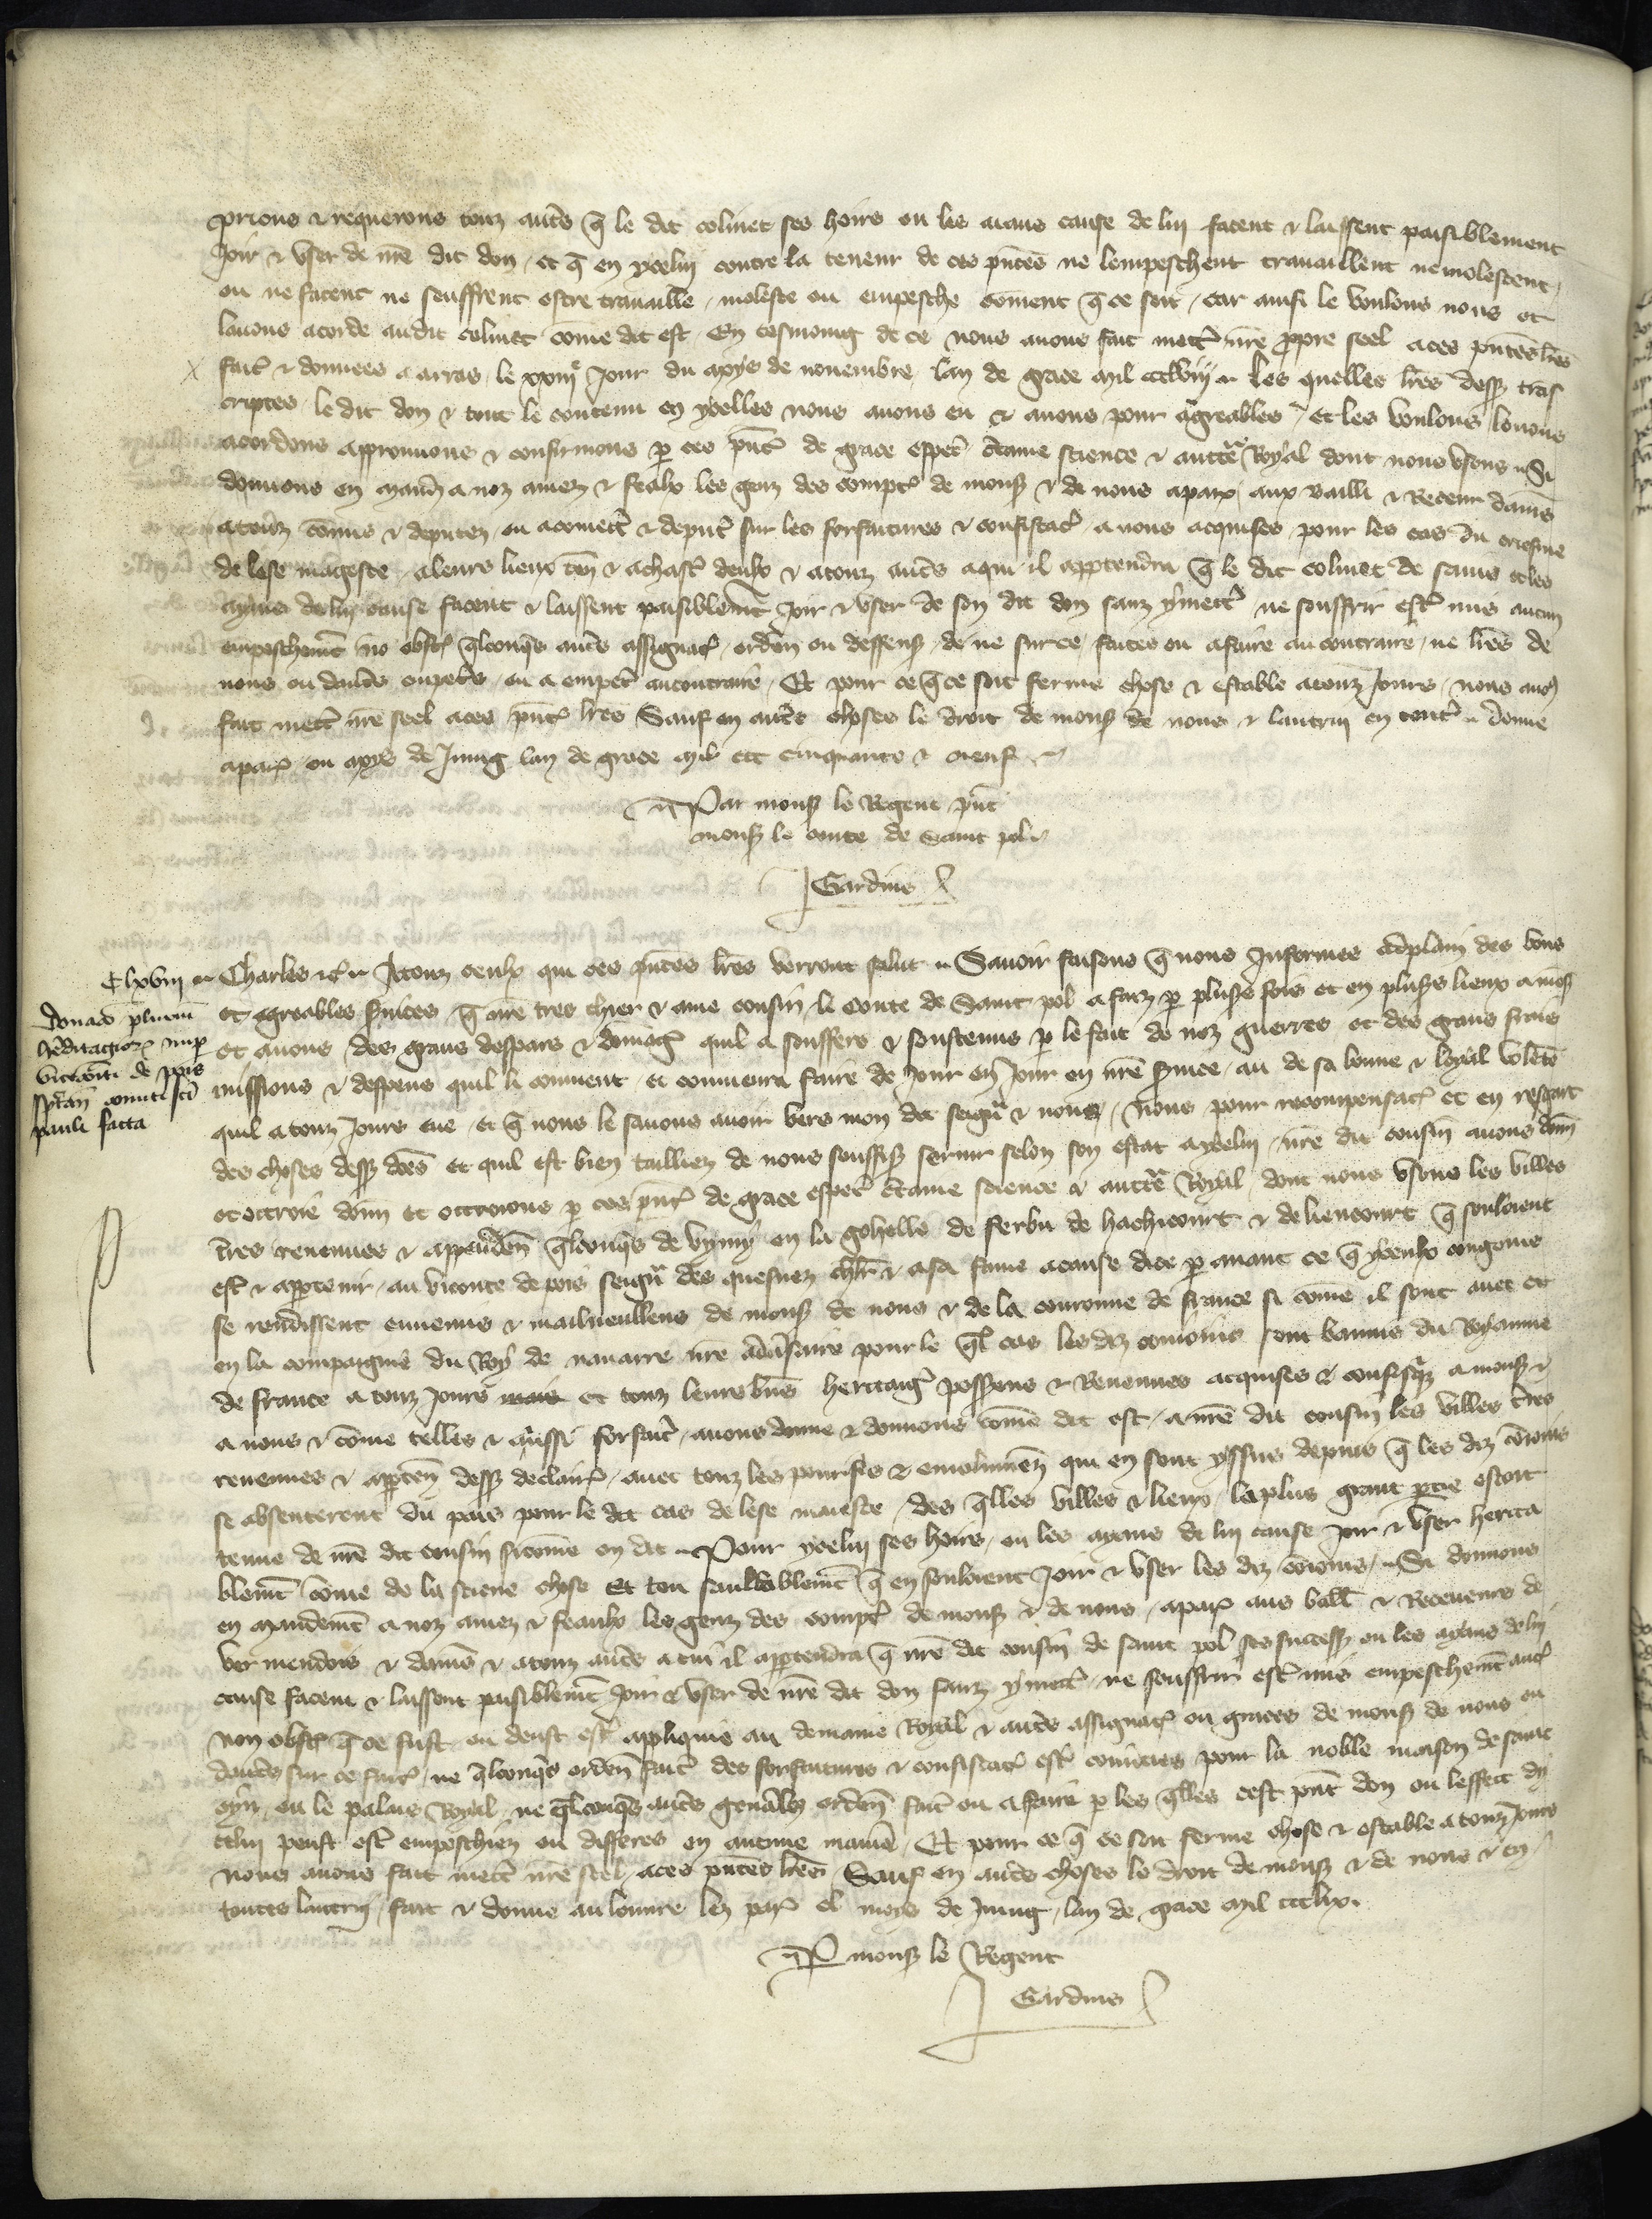 prions & requerons touz autres q̄ le dit colinet ses hoirs ou les aians cause de lui facent & laissent paisiblement
Joir & vser de nr̄e dit don et q̄ en ycelui contre la teneur de ces pn̄tes ne lempeschent travaillent ne molestent
ou ne facent ne seuffrent estre travaille moleste ou empesche coment q̄ ce soit car ainsi le voulons nous et
lavons acorde audit colinet cōme dit est En tesmoing de ce nous avons fait mettr̄ nr̄e propre seel a ces pn̄tes lr̄es
fait̄ & donnees a arras le xxiiijᵉ Jour du moys de novembre lan de grace mil ccclviij Les quelles lr̄es dess⁹ tras
criptes le dit don & tout le contenu en ycelles nous avons eu & avons pour agreables et les voulons louons
acordons approuvons & confirmons p̱ ces pn̄t̄ de grace esp̄et̄ c̄taine science & auct̄te Royal dont nous vsons Si
donnons en mand̄ a noz amez & feaulx les genz des compt̄ de mons̄ & de nous a paris aux bailli & Receveur damiēs
a touz cōmis & deputez ou a comectr̄ & deput̄ sur les forfaitures & confiscat̄ a nous acquises pour les cas du crisme
de lese mageste a leurs lieux ten̄ & a chasc̄ deulx & a touz autres a qui il appartendra q̄ le dit colinet de sains et les
ayans de lui cause facent & laissent paisiblemēt Joir & vser de son dit don sanz y mectr̄ ne souffrir estr̄ mis aucun
empeschemēt no obst̄ q̄lconques autres assignat̄ orden̄ ou deffens̄ de ne sur ce faites ou a faire au contraire ne lr̄es de
nous ou dautres empetr̄ ou a empetr̄ au contraire Et pour ce q̄ ce soit ferme chose & estable a touz Jours nous avōs
fait mettr̄ nr̄e seel a ces pn̄t̄ lr̄es Sauf en autres choses le droit de mons̄ de nous & lautrui en tout̄ donne
a paris ou moys de Juing lan de grace mil ccc cinquante & neuf
Par mons̄ le Regent pn̄t
mons̄ le conte de Saint pol
Gardins
C lxviij Charles &c̄ A touz ceulx qui ces pn̄tes lr̄es verront salut Savoir faisons q̄ nous Informes a plain des bons
donac̄o plurim̄
hereditagior̄ nup̱
vicecōti de poix
sp̄tan̄ comiti sc̄i
pauli facta
et agreables services q̄ nr̄e tres chier & ame cousin le conte de Saint pol a faiz p̱ plus̄s fois et en plus̄s lieux a mons̄
et a nous des grans despars & domaḡ quil a souffers & soustenus p̱ le fait de noz guerres et des grans frais
missions & despens quil li convient et convenra faire de Jour en Jour en nr̄e service au de sa bonne & loyal volēte
quil a touz Jours eue et q̄ nous le savons avoir vers mon dit seigr̄ & nous nous pour recompensat̄ et en regart
des choses dess⁹ dc̄es et quil est bien tailliez de nous souffis̄ servir selon son estat a ycelui nr̄e dit cousin avons don̄
et ottroie don̄ et ottroions p̱ ces pn̄t̄ de grace esp̄et̄ c̄taine science & auct̄te Royal dont nous vsons les villes
t̄res revenues & apparten̄ q̄lconques de vymy en la gohelle de ferbu de hachicourt & de liencourt q̄ souloient
estr̄ & appartenir au viconte de pois seigr̄ des quesnez chl̄r & a sa fame a cause delle p̱ avant ce q̄ yceulx conjoins
se rendissent ennemis & mailveullens de mons̄ de nous & de la couronne de france si cōme il sont avec et
en la compaignie du Roy de navarre nr̄e adv̄saire pour le q̄l cas les diz conioins sont bannis du Royaume
de france a touz Jours et touz leurs biēs heritaḡ possess̄ions & Revenues acquises & confisq̄z a mons̄ &
a nous & cōme telles & aussi forfait̄ avons donne & donnons cōme dit est a nr̄e dit cousin les villes t̄res
revenues & apparten̄ dess⁹ declair̄ avec touz les pourfis & emolumēz qui en sont yssus depuis q̄ les diz cōioins
se absenterent du pais pour le dit cas de lese maieste des q̄lles villes & lieux la plus grant partie estoit
tenue de nr̄e dit cousin si cōme en dit Pour ycelui ses hoirs ou les ayans de lui cause Joir & vser herita
blemēt cōme de la sciene chose Et tou samblablemēt q̄ en souloient Joir & vser les diz cōioins Si donnons
en mandemēt a noz amez & feaulx les genz des compt̄ de mons̄ & de nous a paris aus baill̄ & Receveurs de
vermendois & damiēs & a touz autres a cui il appartendra q̄ nr̄e dit cousin de saint pol ses success̄ ou les ayans de lui
cause facent & laissent paisiblemēt Joir & vser de nr̄e dit don sanz y mectr̄ ne souffrir estr̄ mis empeschemēt auc̄
non obst̄ q̄ ce fust ou deust estr̄ aplique au demaine Royal & autres assignat̄ ou graces de mons̄ de nous ou
dautres sur ce fait̄ ne q̄lconques orden̄ fait̄ des forfaitures & confiscat̄ estr̄ convties pour la noble maison de saint
oyn ou le palais Royal ne q̄lconques autres gen̄ales orden̄ fait̄ ou a faire p̱ les q̄lles cest pn̄t don ou leffect dy
celui peust estr̄ empeschiez ou differes en aucune maniē Et pour ce q̄ ce soit ferme chose & estable a touz Jours
nous avons fait mectr̄ nr̄e scel a ces pn̄tes lr̄es Sauf en autres choses le droit de mons̄ & de nous & en
toutes lautrui fait & donne au louvre lez paris el moys de Juing lan de grace mil ccclix
P̱ mons̄ le Regent
Gardins